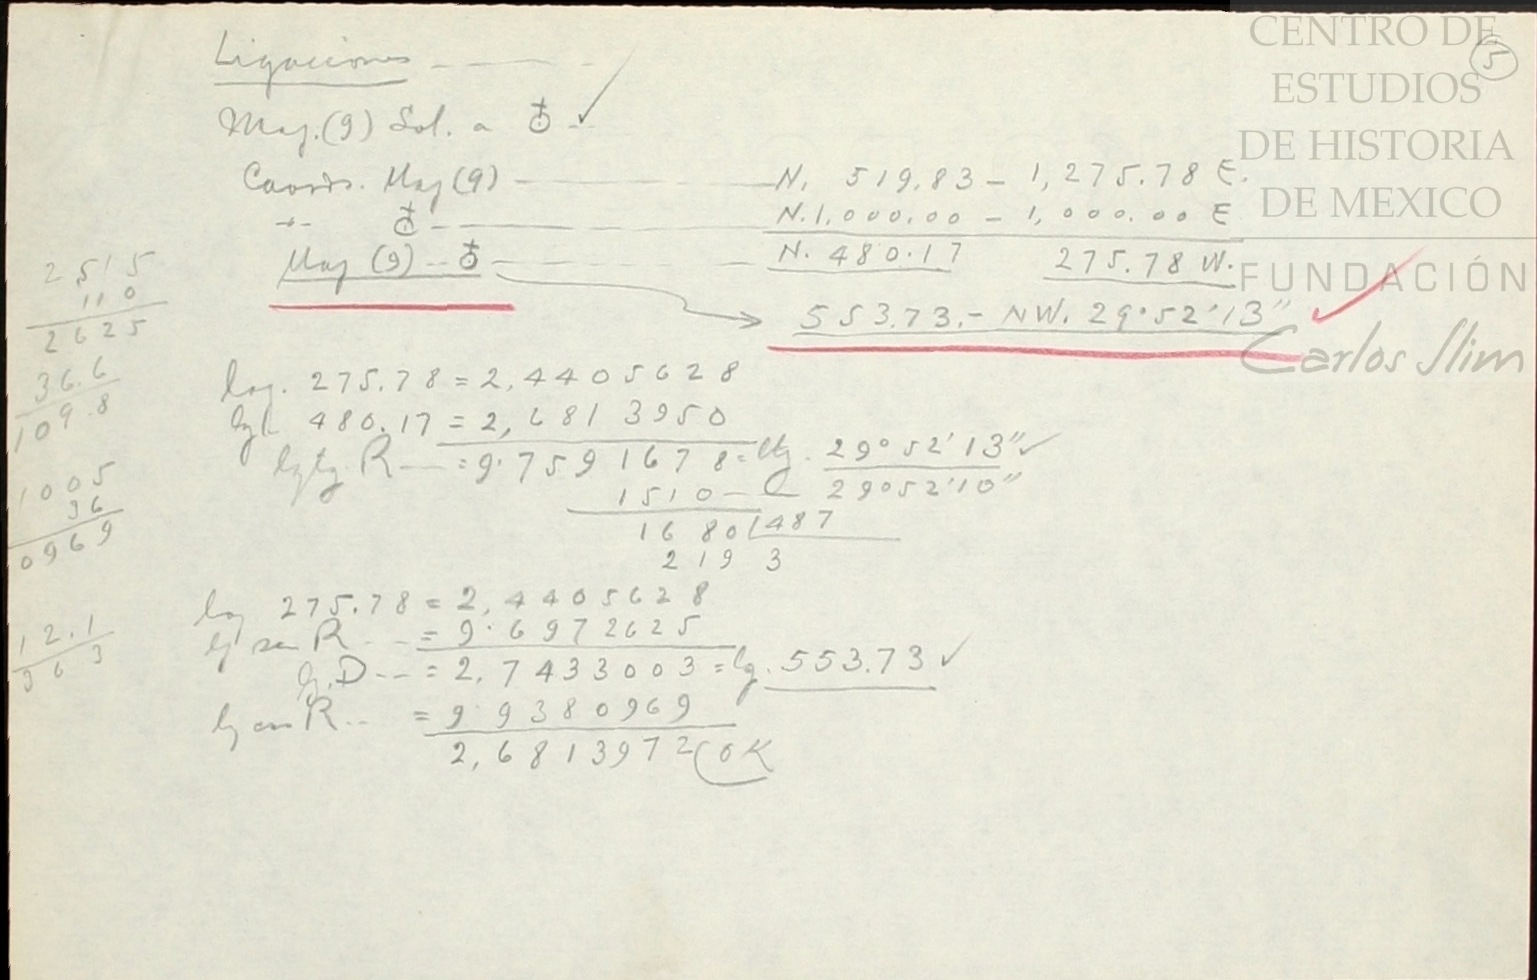 CENTRO DE
ESTUDIOS
DE HISTORIA
DE MEXICO
FUNDACIÓN
Carlos Slim
5
Ligaciones
Moj. (9) Sol. a ♁
Coords. Moj (9) N. 519.83 - 1,275.78 E.
-"- ♁ N. 1,000.00 - 1,000.00 E
Moj (9) - ♁ N. 480.17 275.78 W.
553.73.- NW. 29°52'13"
log. 275.78 = 2,4405628
lg 480.17 = 2,6813950
lg tg. R = 9.7591678 = ltg. 29°52'13"
1510 29°52'10"
1680 487
219 3
log 275.78 = 2,4405628
lg sen R = 9.6972625
lg. D = 2,7433003 = lg. 553.73
lg cos R = 9.9380969
2,6813972 OK
2515
110
2625
36.6
109.8
1005
36
0969
12.1
363